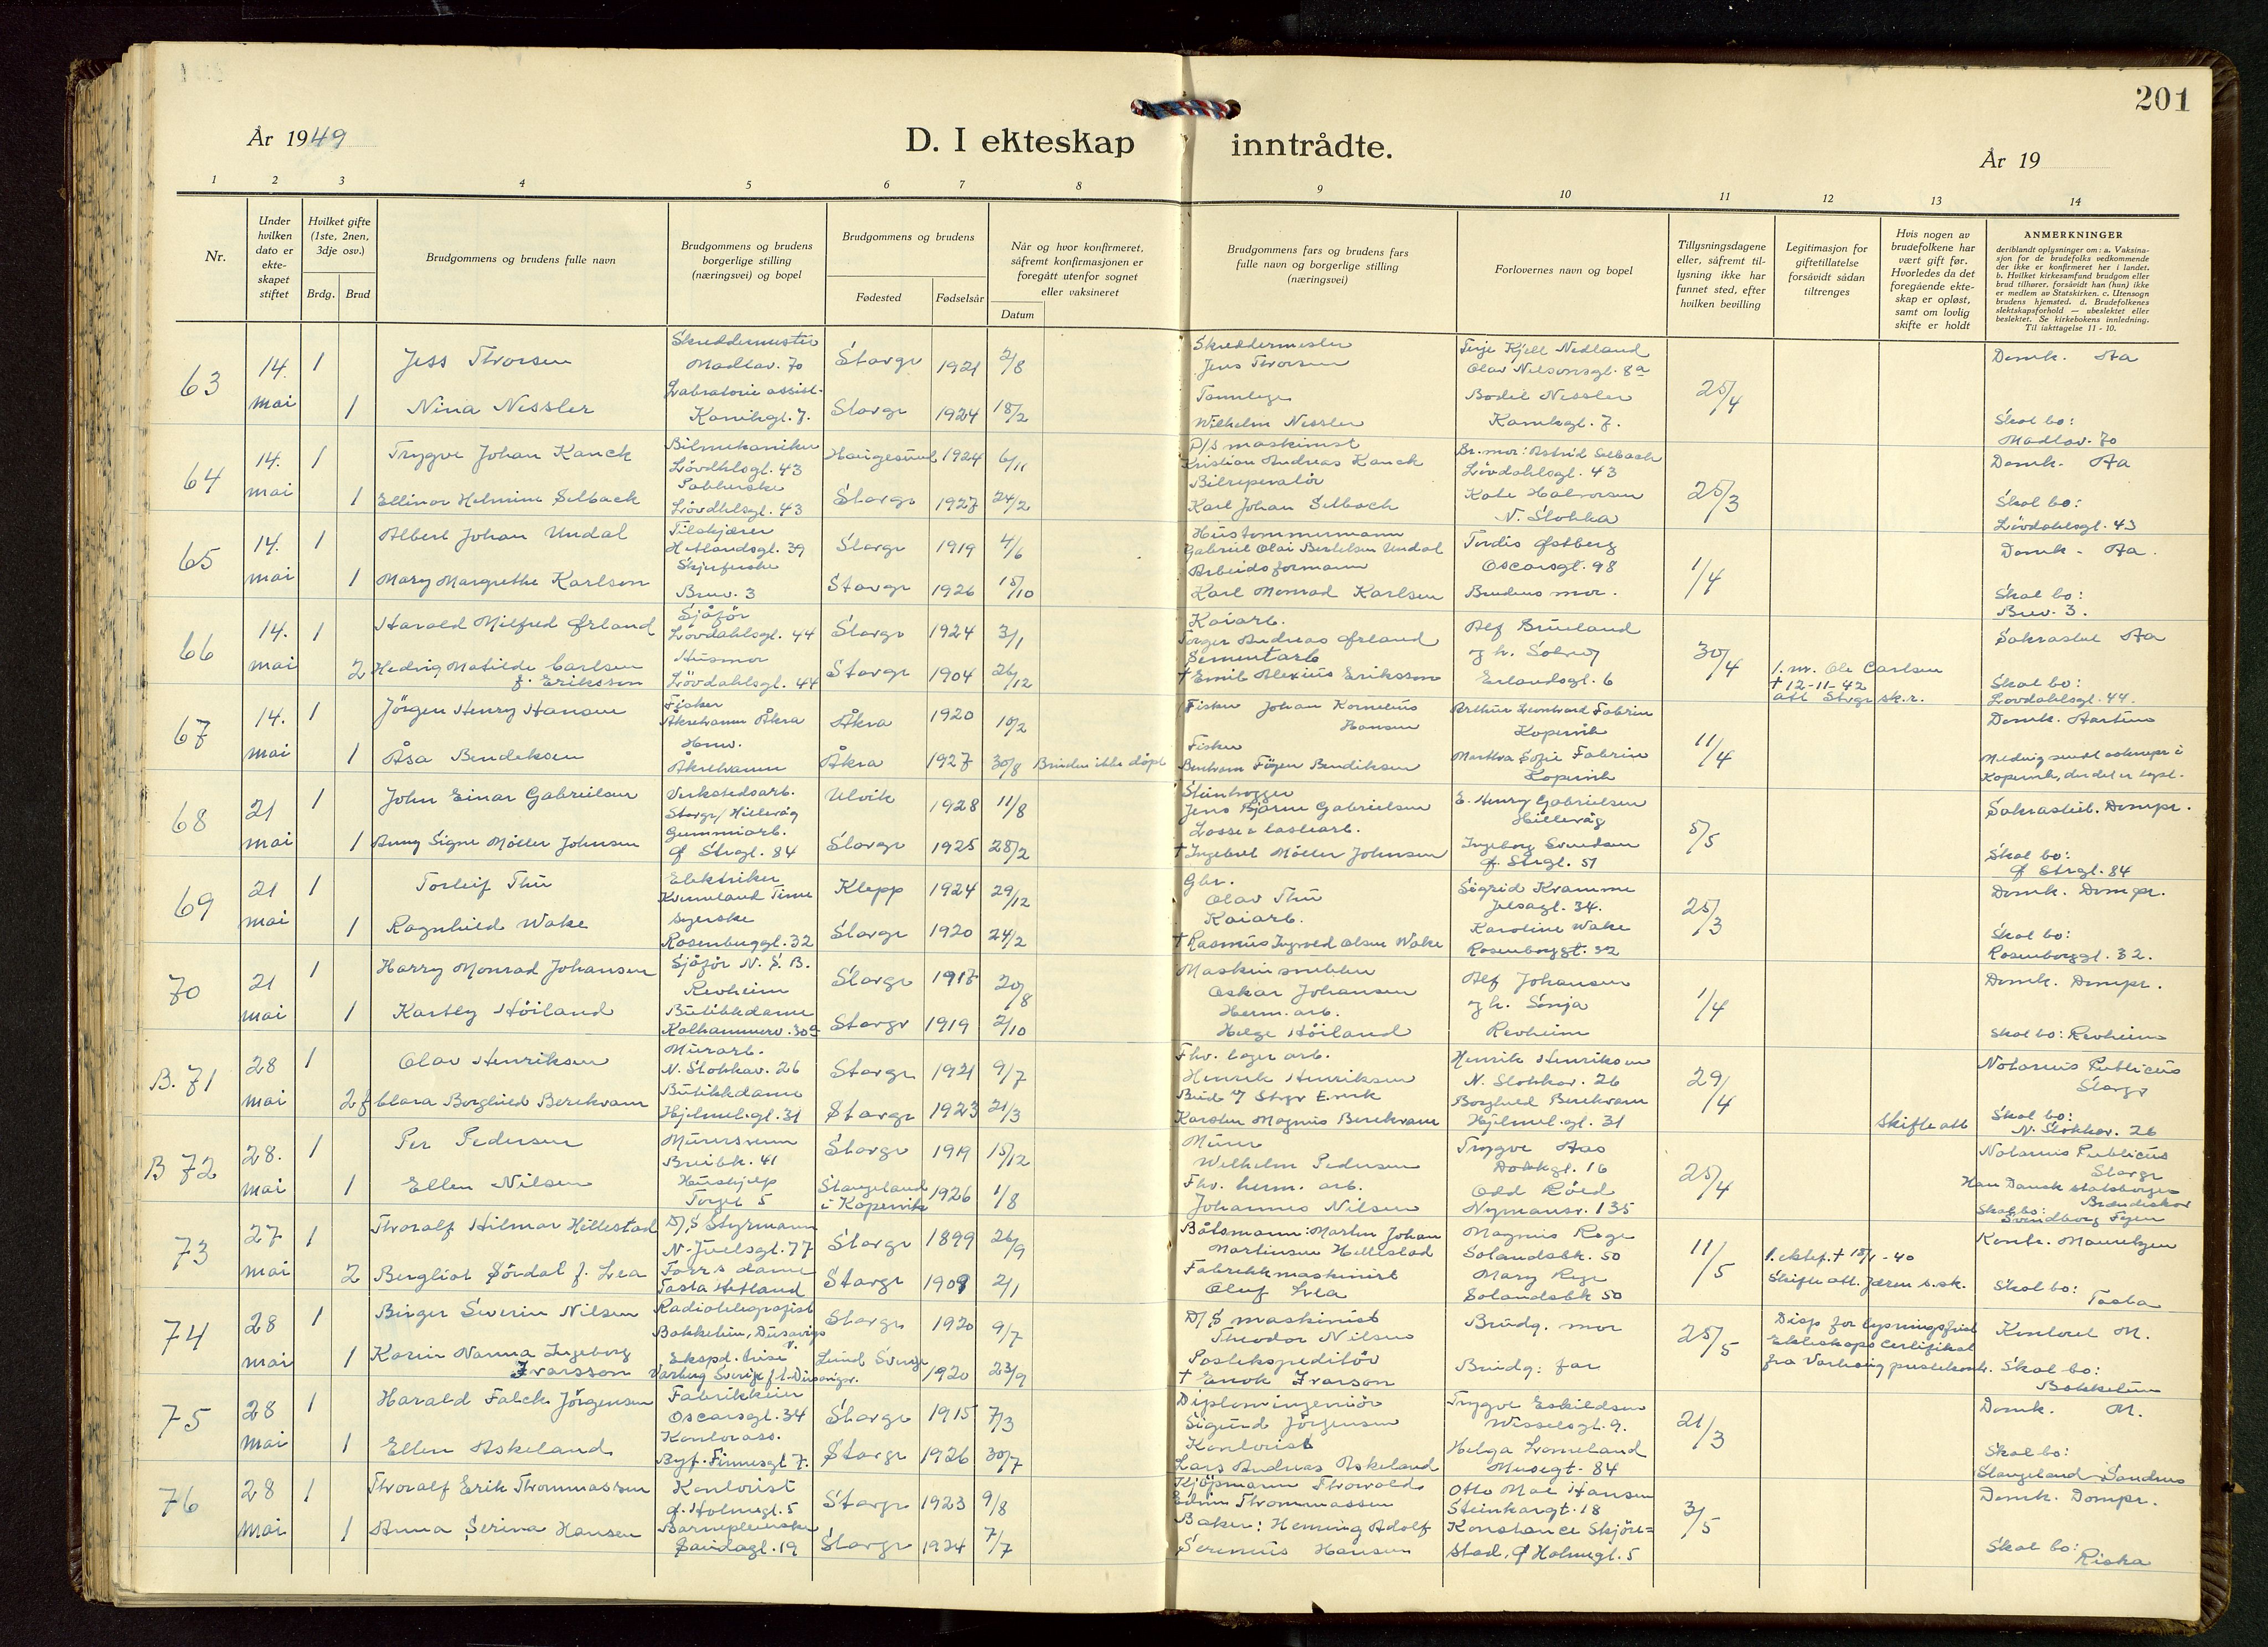 201
År 1949
D. I ekteskap inntrådte.
År 19
1 2 3 4 5 6 7 8 9 10 11 12 13 14
Nr.
Under hvilken dato er ekte-skapet stiftet
Hvilket gifte (1ste, 2nen, 3dje osv.)
Brdg. Brud
Brudgommens og brudens fulle navn
Brudgommens og brudens borgerlige stilling (næringsvei) og bopel
Brudgommens og brudens
Fødested Fødselsår
Når og hvor konfirmeret, såfremt konfirmasjonen er foregått utenfor sognet eller vaksineret
Datum
Brudgommens fars og brudens fars fulle navn og borgerlige stilling (næringsvei)
Forlovernes navn og bopel
Tillysningsdagene eller, såfremt til-lysning ikke har funnet sted, efter hvilken bevilling
Legitimasjon for giftetillatelse forsåvidt sådan tiltrenges
Hvis nogen av brudefolkene har vært gift før. Hvorledes da det foregående ekte-skap er opløst, samt om lovlig skifte er holdt
ANMERKNINGER
deriblandt oplysninger om: a. Vaksina-sjon for de brudefolks vedkommende der ikke er konfirmeret her i landet. b. Hvilket kirkesamfund brudgom eller brud tilhører, forsåvidt han (hun) ikke er medlem av Statskirken. c. Utensogn brudens hjemsted. d. Brudefolkenes slektskapsforhold — ubeslektet eller beslektet. Se kirkebokens innledning. Til iakttagelse 11 - 10.
63 14. mai 1 Jess Thorsen Skreddermester Madlav. 70 Stavgr 1921 2/8 Skreddermester Jens Thorsen Terje Kjell Nedland Olav Nilsonsgt. 8a 25/4 Domk. Aa
1 Nina Nessler Labratorie assist. Kanikgt. 7. Stavgr 1924 18/2 Tannlege Wilhelm Nessler Bodil Nessler Kanikgt. 7. Skal bo: Madlav. 70
64 14. mai 1 Trygve Johan Kanck Bilmekaniker Lövdahlsgt. 43 Haugesund 1924 6/11 D/S maskinist Kristian Andreas Kanck Br. mor: Astrid Selbach Lövdahlsgt. 43 25/3 Domk. Aa
1 Ellinor Helmine Selback Lövdhlsgt. 43 Stavgr 1927 24/2 Bilreperatör Karl Johan Selbach Kate Halvorsen N. Stokka Skal bo: Lövdahlsgt. 43
65 14. mai 1 Albert Johan Undal Tilskjærer Hetlandsgt. 39 Stavgr 1919 4/6 Hustømmermann Gabriel Olai Bertelsen Undal Tordis Østberg Oscarsgt. 98 1/4 Domk. Aa.
1 Mary Margrethe Karlson Bruv. 3 Stavgr 1926 15/10 Arbeidsformann Karl Monrad Karlsen Brudens mor. Skal bo: Brev. 3.
66 14. mai 1 Harald Milfred Ørland Sjåför Lövdahlsgt. 44 Stavgr 1924 3/1 Kaiarb. Torger Andreas Ørland Alf Brueland og h. Solveig 30/4 Sakrastiet Aa
2 Hedvig Matilde Carlsen f. Eriksson Husmor Lövdahlsgt. 44 Stavgr 1904 26/12 Sementarb † Emil Alexius Eriksson Erlandsgt. 6 1. m. Ole Carlsen † 12-11-42 att Stvgr sk.r. Skal bo: Lövdahlsgt. 44.
67 14. mai 1 Jörgen Henry Hansen Fisker Åkrehamn Åkra Åkra 1920 10/2 Fisker Johan Kornelius Hansen Arthur Leonhard Fabrin Kopervik 11/4 Domk.
1 Åsa Bendiksen Åkrehamn Åkra 1927 30/8 Bruden ikke döpt Fisker Bendiksen Marthea Sofie Fabrin Kopervik Kopervik, der det er lyst.
68 21 mai 1 John Einar Gabrielsen Verkstedsarb. Stavgr/ Hillevåg Ulvik 1928 11/8 Steinhogger Jens Bjårne Gabrielsen E. Henry Gabrielsen Hillevåg 5/5 Sakrastiet. Dompr.
1 Anny Signe Möller Johnsen Gummiarb. Ø Strgt. 84 Stavgr 1925 28/2 Losse & lastearb. † Ingebret Möller Johnsen Ingeborg Svendsen Ø. Strgt. 51 Skal bo: Ø Strgt. 84
69 21 mai 1 Torleif Thu Elektriker Kverneland Time Klepp 1924 29/12 Gbr. Olav Thu Sigrid Kramme Jelsagt. 34. 25/3 Domk. Dompr.
1 Ragnhild Wake Syerske Rosenberggt. 32 Stavgr 1920 24/2 Kaiarb. † Rasmus Ingvald Olsen Wake Karoline Wake Rosenborggt. 32 Skal bo: Rosenborggt. 32.
70 21 mai 1 Harry Monrad Johansen Sjåför N. S. B. Revheim Stavgr 1917 20/8 Maskinsnekker Oskar Johansen Alf Johansen og h. Sonja 1/4 Domk. Dompr.
1 Kastey Höiland Butikkdame Kalhammerv. 30a Stavgr 1919 2/10 Herm. arb. Helge Höiland Revheim Skal bo: Revheim
B. 71 28 mai 1 Olav Henriksen Murarb. N. Stokkav. 26 Stavgr 1921 9/7 Fhv. lager arb. Henrik Henriksen Henrik Henriksen N. Stokkav. 26 29/4 Notarius Publicus Stavgr
2 f Clara Borghild Berekvam Butikkdame Hjelmel.gt. 31 Stavgr 1923 21/3 Karsten Magnus Berekvam Borghild Berekvam Hjelmel.gt. 31 Skifte att Skal bo: N. Stokkav. 26
B 72 28. mai 1 Per Pedersen Murersvenn Breibk. 41 Stavgr 1919 15/12 Murer Wilhelm Pedersen Trygve Aas Dokkgt. 16 25/4 Notarius Publicus Stavgr
1 Ellen Nilsen Hushjelp Torget 5 Stangeland i Kopervik 1926 1/8 Fhv. herm. arb. Johannes Nilsen Odd Röed Nymansv. 135 Han Dansk statsborger Skal bo: Svendborg Fyen
73 27 mai 1 Thoralf Hilmar Hillestad D/S Styrmann N. Juelsgt. 77 Stavgr 1899 26/9 Båtsmann: Martin Johan Martinsen Hellestad Magnus Rege Solandsbk. 50 11/5 1. ektef. † 18/1 - 40
2 Bergliot Sördal f. Lea Tasta Hetland Stavgr 1909 2/1 Fabrikkmaskinist Oluf Lea Mary Rege Solandsbk 50 Skifte att. Jæren s.sk. Skal bo: Tasta
74 28 mai 1 Birger Severin Nilsen Radiotelegrafist Bakketun, Dusavigv Stavgr 1920 9/7 D/S maskinist Theodor Nilsen Brudg. mor 25/5 Disp for lysningsfrist Ekteskaps certifikat Kontoret M.
1 Karin Nanna Ingeborg Ivarsson Lund Sverige 1920 23/9 Postekspeditör † Enok Ivarson Brudg: far fra Varberg Skal bo: Bakketun
75 28 mai 1 Harald Falck Jörgensen Fabrikkeier Oscarsgt. 34 Stavgr 1915 7/3 Diplomingeniör Sigurd Jörgensen Trygve Eskildsen Wesselsgt. 9. 21/3 Domk. M.
1 Ellen Askeland Kontorass. Byf. Finnesgt 7. Stavgr 1926 30/7 Kontorist Lars Andreas Askeland Helga Lomeland Musegt. 84 Skal bo: Stangeland Sandnes
76 28 mai 1 Thoralf Erik Thommassen Kontorist Ø. Holmegt. 5 Stavgr 1923 9/8 Kjöpmann Thorvald Edvin Thommassen Otto Mal Hansen Steinkargt. 18 3/5 Domk. Dompr.
1 Anna Serina Hansen Barnepleierske Saudagt. 19 Stavgr 1924 7/7 Baker: Henning Adolf Serenius Hansen Konstance Skjöre=stad, Ø Holmegt. 5 Skal bo: Riska